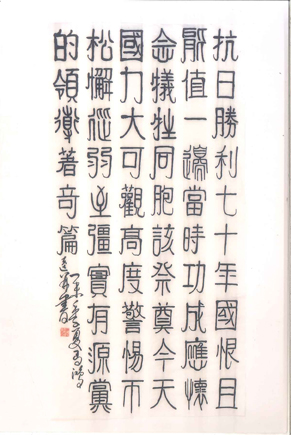 抗日勝利七十年國恨且
值一邊當時功成應懷
念犧牲同胞該祭奠今天
國力大可觀高度警惕不
松懈從弱至彊實有源黨
的領導著奇篇